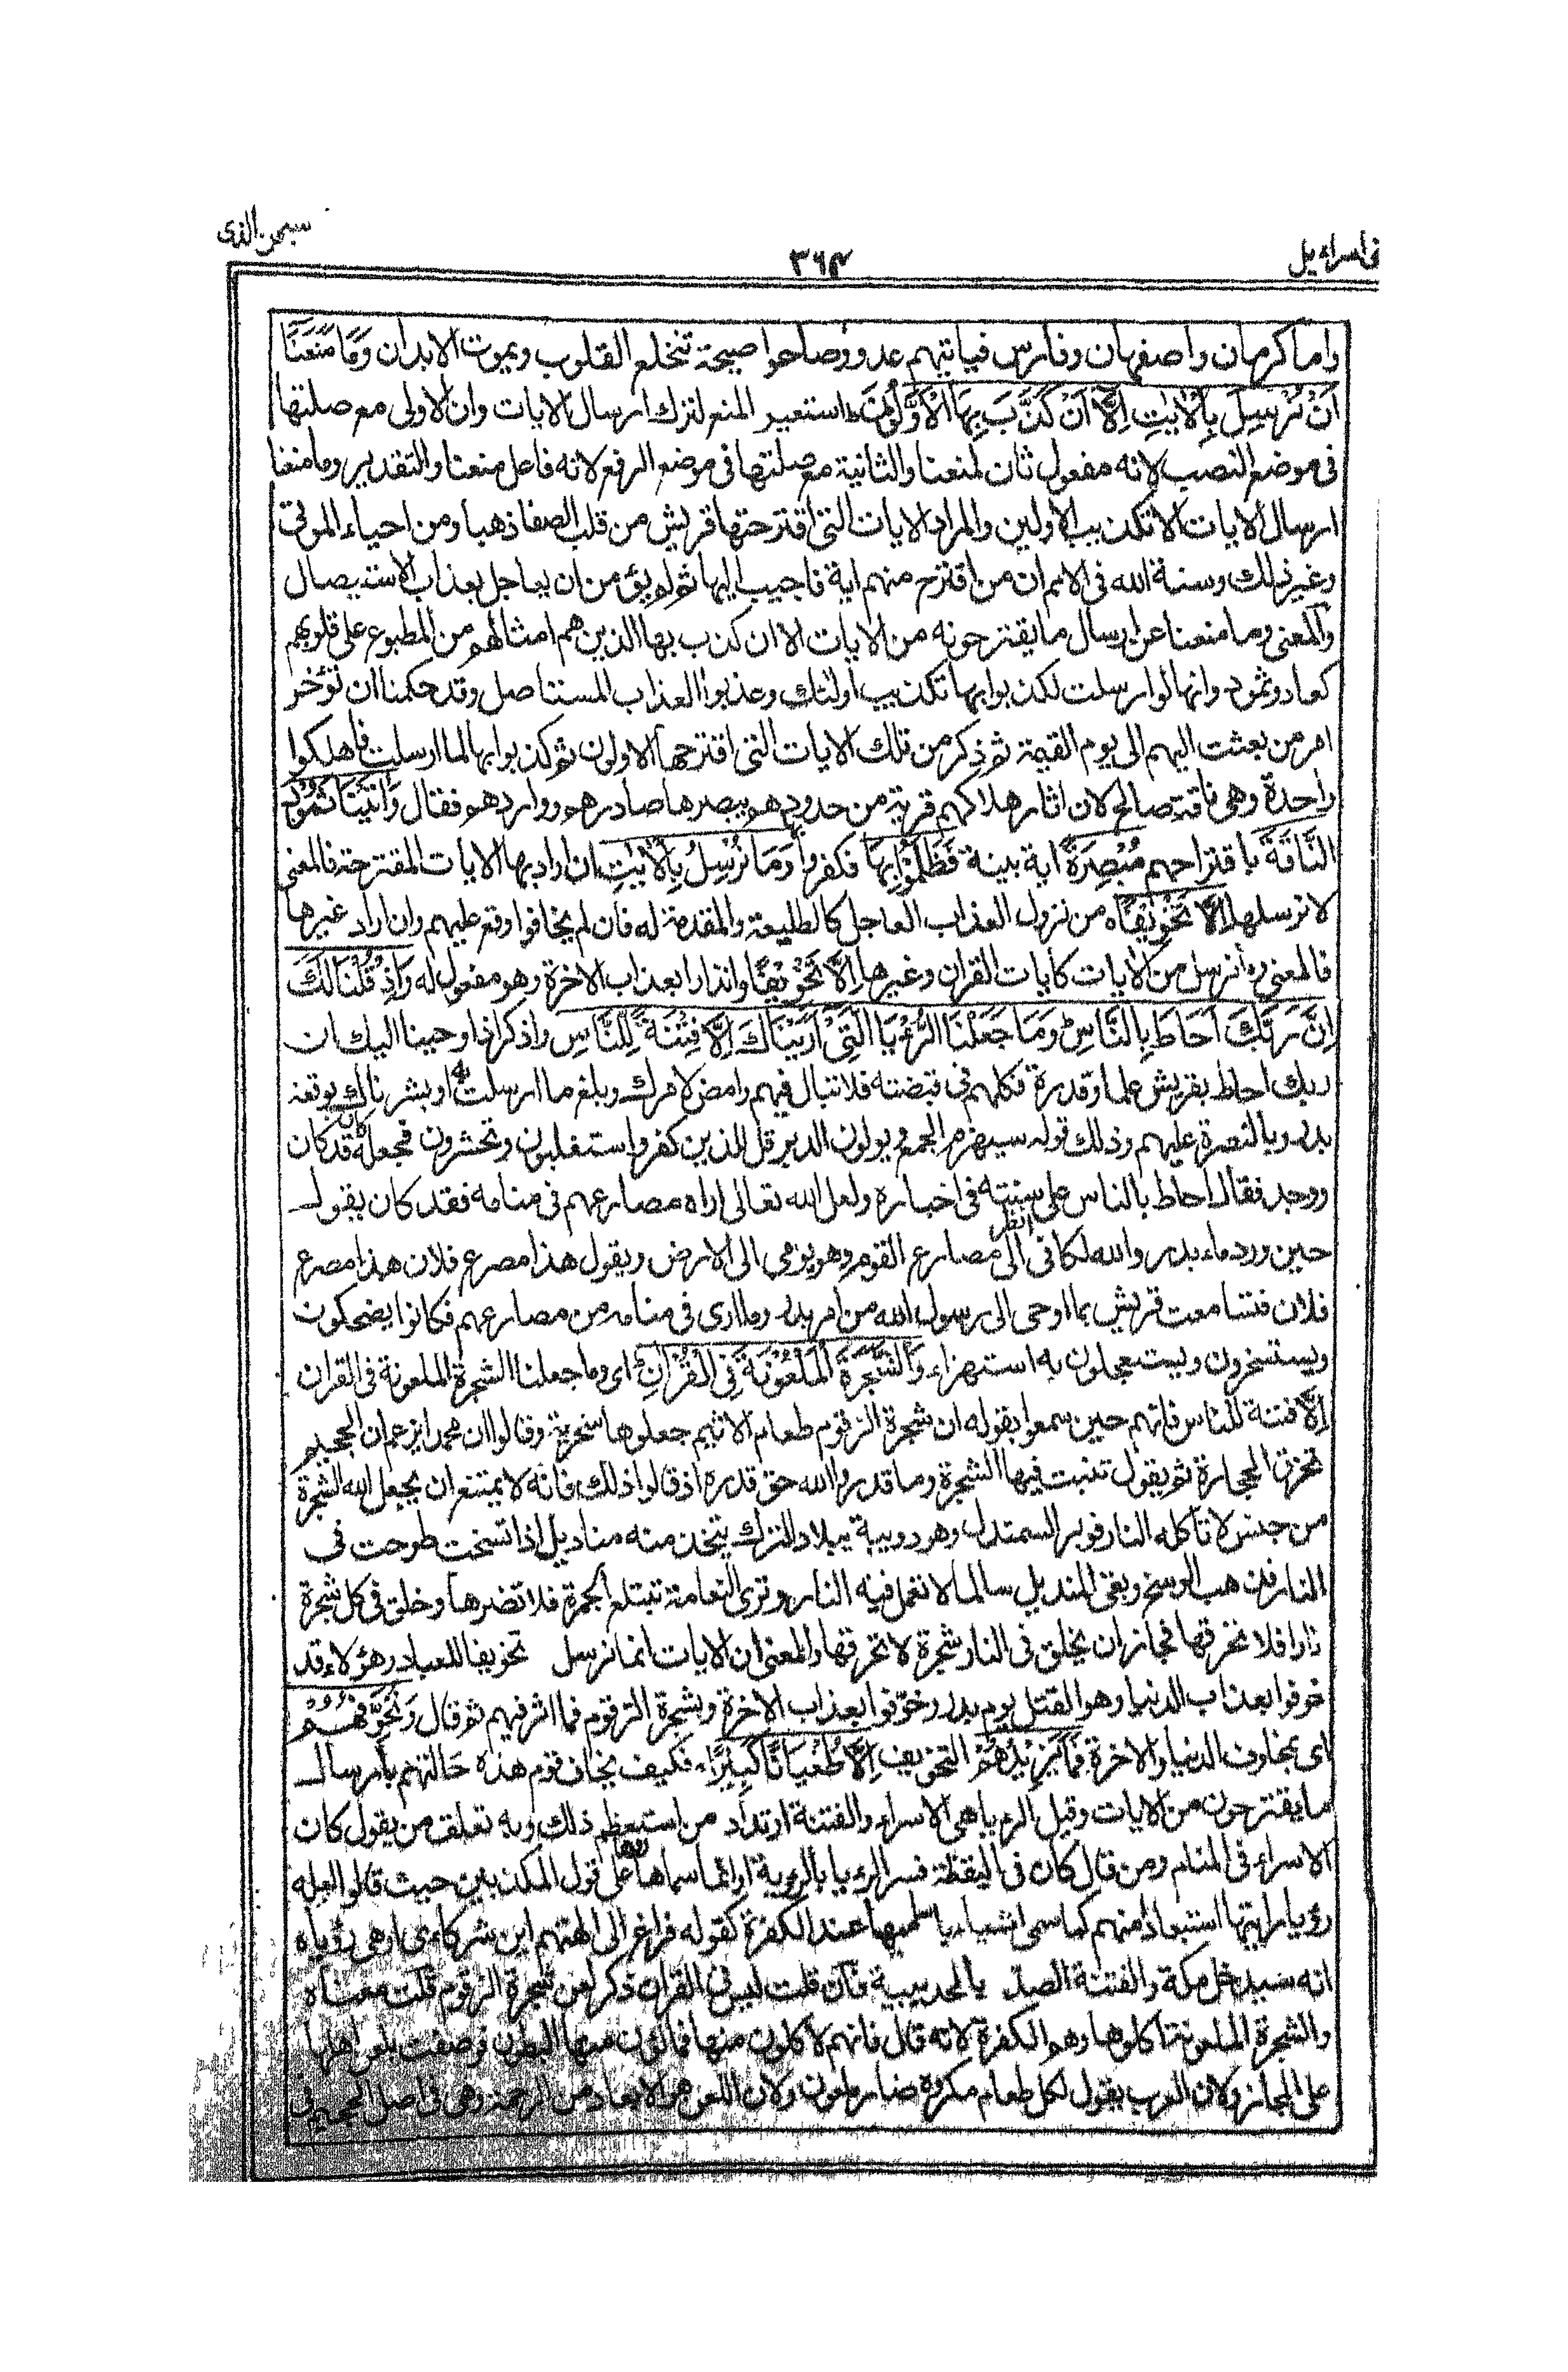 سبحن الذى
٣٦٤
نى اسراءيل
واما كرمان واصفهان وفارس فياتيهم عدو وصاحوا صيحة تنخلع القلوب ويموت الابدان وَمَا مَنَعَنَا
اَنْ نُرْسِلَ بِالْاٰيٰتِ اِلَّا اَنْ كَذَّبَ بِهَا الْاَوَّلُوْنَ ط استعير المنع لترك ارسال الايات وان الاولى مع صلتها
فى موضع النصب لانه مفعول ثان لمنعنا والثانية مع صلتها فى موضع الرفع لانه فاعل منعنا والتقدير وما منعنا
ارسال الايات الا تكذيب الاولين والمراد الايات التى اقترحتها قريش من قلب الصفا ذهبا ومن احياء الموتى
وغير ذلك وسنة الله فى الامم ان من اقترح منهم اية فاجيب اليها ثم لم يؤمن ان يعاجل بعذاب الاستيصال
والمعنى وما منعنا عن ارسال ما يقترحونه من الايات الا ان كذب بها الذين هم امثالهم من المطبوع على قلوبهم
كعاد وثمود وانها لو ارسلت لكذبوا بها تكذيب اولئك وعذبوا العذاب المستاصل وقد حكمنا ان نؤخر
امر من بعثت اليهم الى يوم القيمة ثم ذكر من تلك الايات التى اقترحها الاولون ثم كذبوا بها لما ارسلت فاهلكوا
واحدة وهى ناقة صالح لان اثار هلاكهم قريبة من حدودهم يبصرها صادرهم وواردهم فقال وَاٰتَيْنَا ثَمُوْدَ
النَّاقَةَ باقتراحهم مُبْصِرَةً اية بينة فَظَلَمُوْا بِهَا فكفروا بها وَمَا نُرْسِلُ بِالْاٰيٰتِ ان اراد بها الايات المقترحة فالمعنى
لا نرسلها اِلَّا تَخْوِيْفًا ه من نزول العذاب العاجل كالطليعة والمقدمة له فان لم يخافوا وقع عليهم وان اراد غيرها
فالمعنى وما نرسل من الايات كايات القران وغيرها اِلَّا تَخْوِيْفًا وانذارا بعذاب الاخرة وهو مفعول له وَاِذْ قُلْنَا لَكَ
اِنَّ رَبَّكَ اَحَاطَ بِالنَّاسِ وَمَا جَعَلْنَا الرُّءْيَا الَّتِىْ اَرَيْنَاكَ اِلَّا فِتْنَةً لِّلنَّاسِ واذكر اذ اوحينا اليك ان
ربك احاط بقريش علما وقدرة فكلهم فى قبضته فلا تبال فيهم وامض لامرك وبلغ ما ارسلت به او بشرناك بوقعة
بدر وبالنصرة عليهم وذلك قوله سيهزم الجمع ويولون الدبر قل للذين كفروا ستغلبون وتحشرون فجعله كان قد كان
ووجد فقال احاط بالناس على سنته فى اخباره ولعل الله تعالى اراه مصارعهم فى منامه فقد كان يقول
حين ورد ماء بدر والله لكانى انظر الى مصارع القوم وهو يومى الى الارض ويقول هذا مصرع فلان هذا مصرع
فلان فتسامعت قريش بما اوحى الى رسول الله من امر بدر وما ارى فى منامه من مصارعهم فكانوا يضحكون
ويستسخرون ويستعجلون به استهزاء وَالشَّجَرَةَ الْمَلْعُوْنَةَ فِى الْقُرْاٰنِ اى وما جعلنا الشجرة الملعونة فى القران
الا فتنة للناس فانهم حين سمعوا بقوله ان شجرة الزقوم طعام الاثيم جعلوها سخرية وقالوا ان محمدا يزعم ان الجحيم
تحرق الحجارة ثم يقول تنبت فيها الشجرة وما قدروا الله حق قدره اذ قالوا ذلك فانه لا يمتنع ان يجعل الله الشجرة
من جنس لا تاكله النار فوبر السمندل وهو دويبة ببلاد الترك يتخذ منه مناديل اذا اتسخت طرحت فى
النار فذهب الوسخ وبقى المنديل سالما لا تعمل فيه النار وترى النعامة تبتلع الجمرة فلا تضرها وخلق فى كل شجرة
نارا فلا تحرقها فجاز ان يخلق فى النار شجرة لا تحرقها والمعنى ان الايات انما نرسل تخويفا للعباد وهؤلاء قد
خوفوا بعذاب الدنيا وهو القتل يوم بدر وخوّفوا بعذاب الاخرة وبشجرة الزقوم فما اثر فيهم ثم قال وَنُخَوِّفُهُمْ
اى بمخاوف الدنيا والاخرة فَمَا يَزِيْدُهُمْ التخويف اِلَّا طُغْيَانًا كَبِيْرًا ه فكيف يخاف قوم هذه حالتهم بارسال
ما يقترحون من الايات وقيل الرءيا هى الاسراء والفتنة ارتداد من استعظم ذلك وبه تعلق من يقول كان
الاسراء فى المنام ومن قال كان فى اليقظة فسر الرءيا بالرءية او انما سماها رؤيا على قول المكذبين حيث قالوا لعله
رؤيا رايتها استبعادا منهم كما سمى اشياء باساميها عند الكفرة كقوله فراغ الى الهتهم اين شركاءى او هى رؤياه
انه سيدخل مكة والفتنة الصد بالحديبية فان قلت ليس فى القران ذكر لعن شجرة الزقوم قلت معناه
والشجرة الملعونة اكلوها وهم الكفرة لانه قال فانهم لاكلون منها فمالؤن منها البطون فوصفت بلعن اهلها
على المجاز ولان العرب يقول لكل طعام مكروه ضار ملعون ولان اللعن هو الابعاد من الرحمة وهى فى اصل الجحيم فى